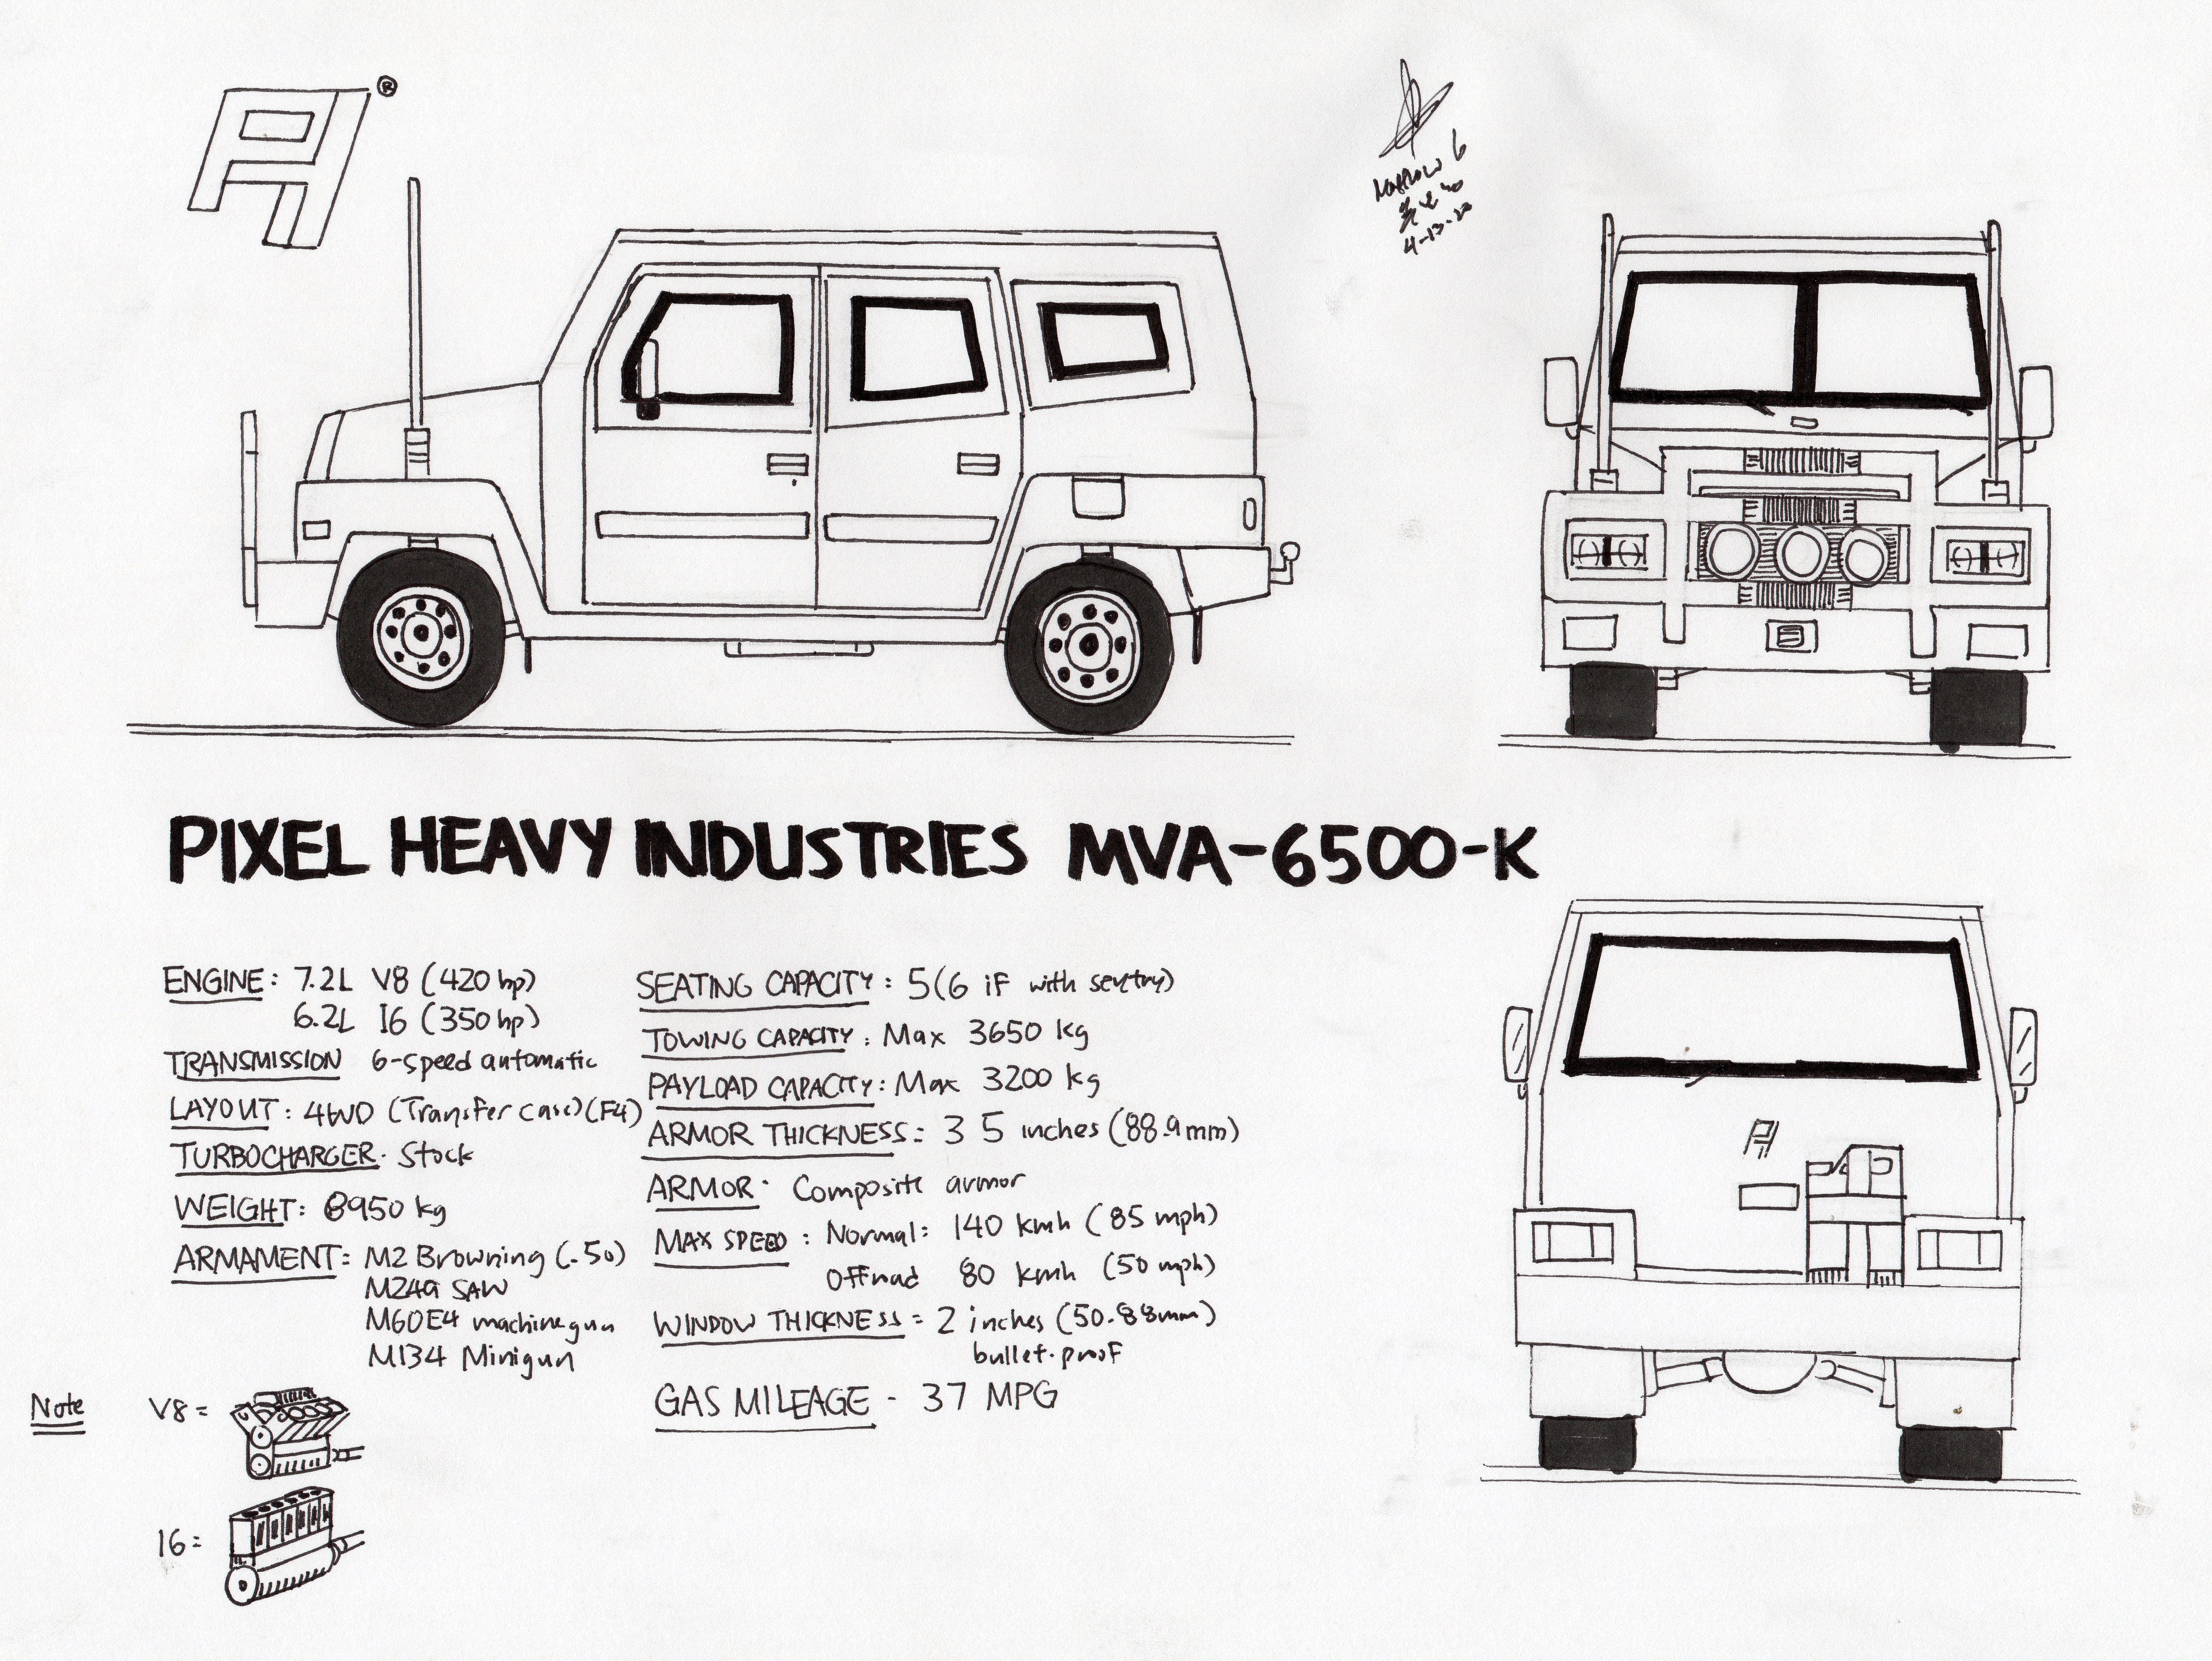 PH®
4-13-20
PIXEL HEAVY INDUSTRIES MVA-6500-K
ENGINE: 7.2L V8 (420 hp)
6.2L I6 (350 hp)
TRANSMISSION 6-speed automatic
LAYOUT: 4WD (Transfer case) (F4)
TURBOCHARGER. Stock
WEIGHT: 8950 kg
ARMAMENT: M2 Browning (.50)
M249 SAW
M60E4 machinegun
M134 Minigun
SEATING CAPACITY: 5 (6 if with sentry)
TOWING CAPACITY: Max 3650 kg
PAYLOAD CAPACITY: Max 3200 kg
ARMOR THICKNESS: 3 5 inches (88.9mm)
ARMOR. Composite armor
MAX SPEED: Normal: 140 kmh (85 mph)
Offroad 80 kmh (50 mph)
WINDOW THICKNESS = 2 inches (50.88mm)
bullet-proof
GAS MILEAGE - 37 MPG
Note
V8 =
I6 =
PH